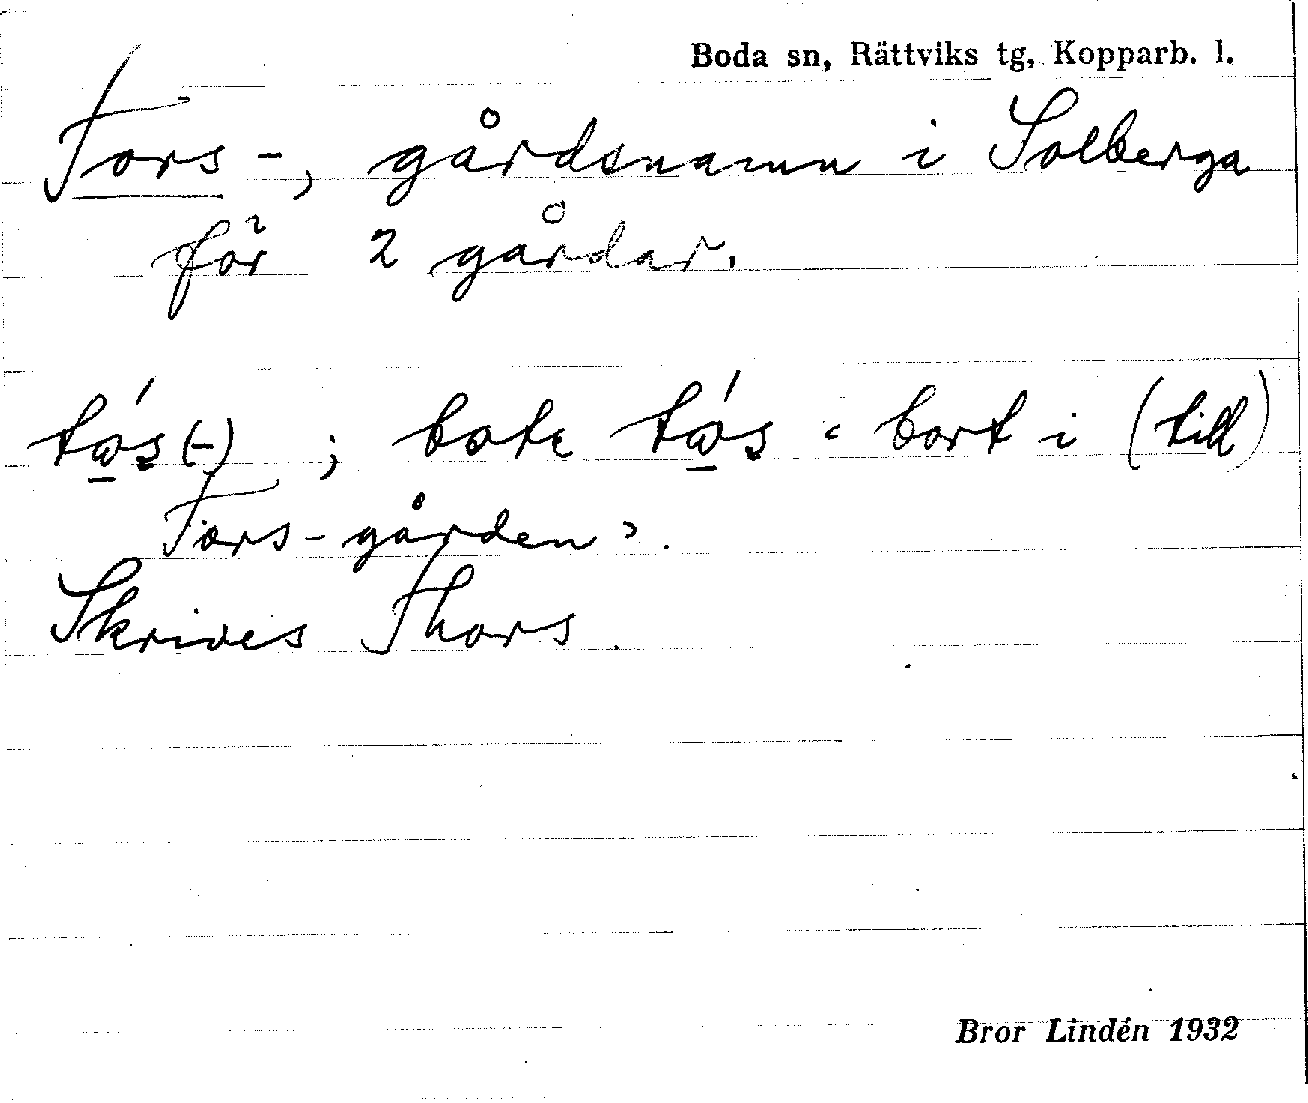 Boda sn, Rättviks tg, Kopparb. l.
Tors-, gårdsnamn i Solberga
för 2 gårdar.
tɷ́s(-) ; botɩ tɷ́s ‹ bort i (till)
Tors-gården › .
Skrives Thors.
Bror Lindén 1932